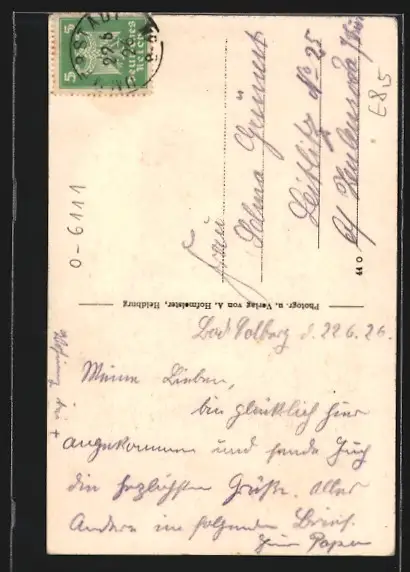 5
5
Deutsches
Reich
22.6
8-9V
Frau
Selma Grünert
Leitlitz No 25
b/ Zeulenroda
E8,5
0-6111
440
Photogr. u. Verlag von A. Hofmeister, Heldburg
Bad Colberg d. 22.6.26.
Meine Lieben,
bin glücklich hier
angekommen und sende Euch
die herzlichsten Grüße. Alles
Andere im folgenden Brief.
Euer Papa